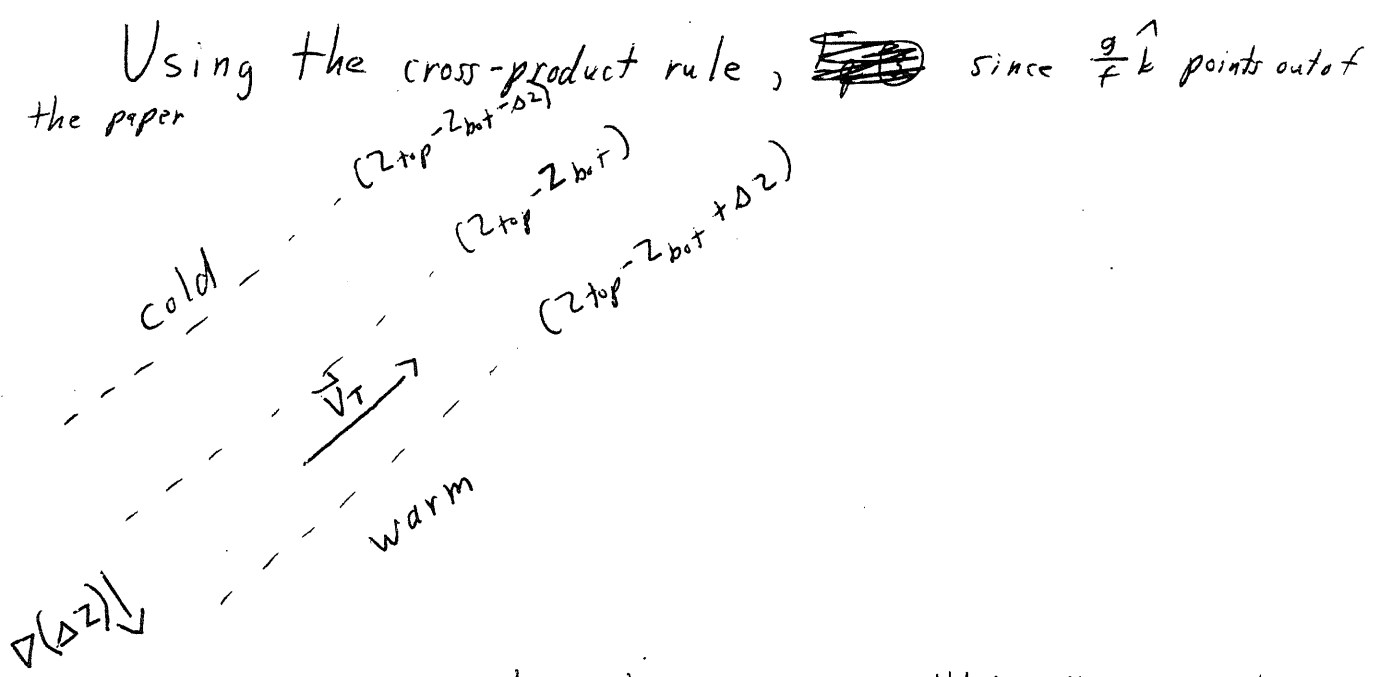 Using the cross-product rule, since g/f k̂ points out of
the paper
(Ztop - Zbot - ΔZ)
(Ztop - Zbot)
(Ztop - Zbot + ΔZ)
cold
V⃗T
warm
∇(ΔZ)